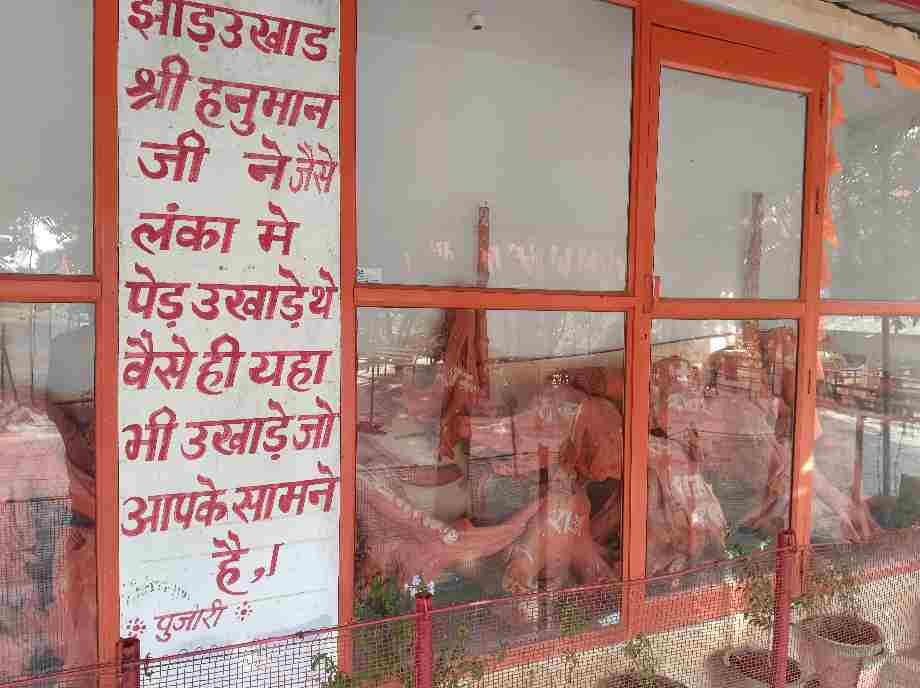 झाड़उखाड
श्री हनुमान
जी ने जैसे
लंका मे
पेड़ उखाड़े थे
वैसे ही यहा
भी उखाड़े जो
आपके सामने
है,।
पुजारी